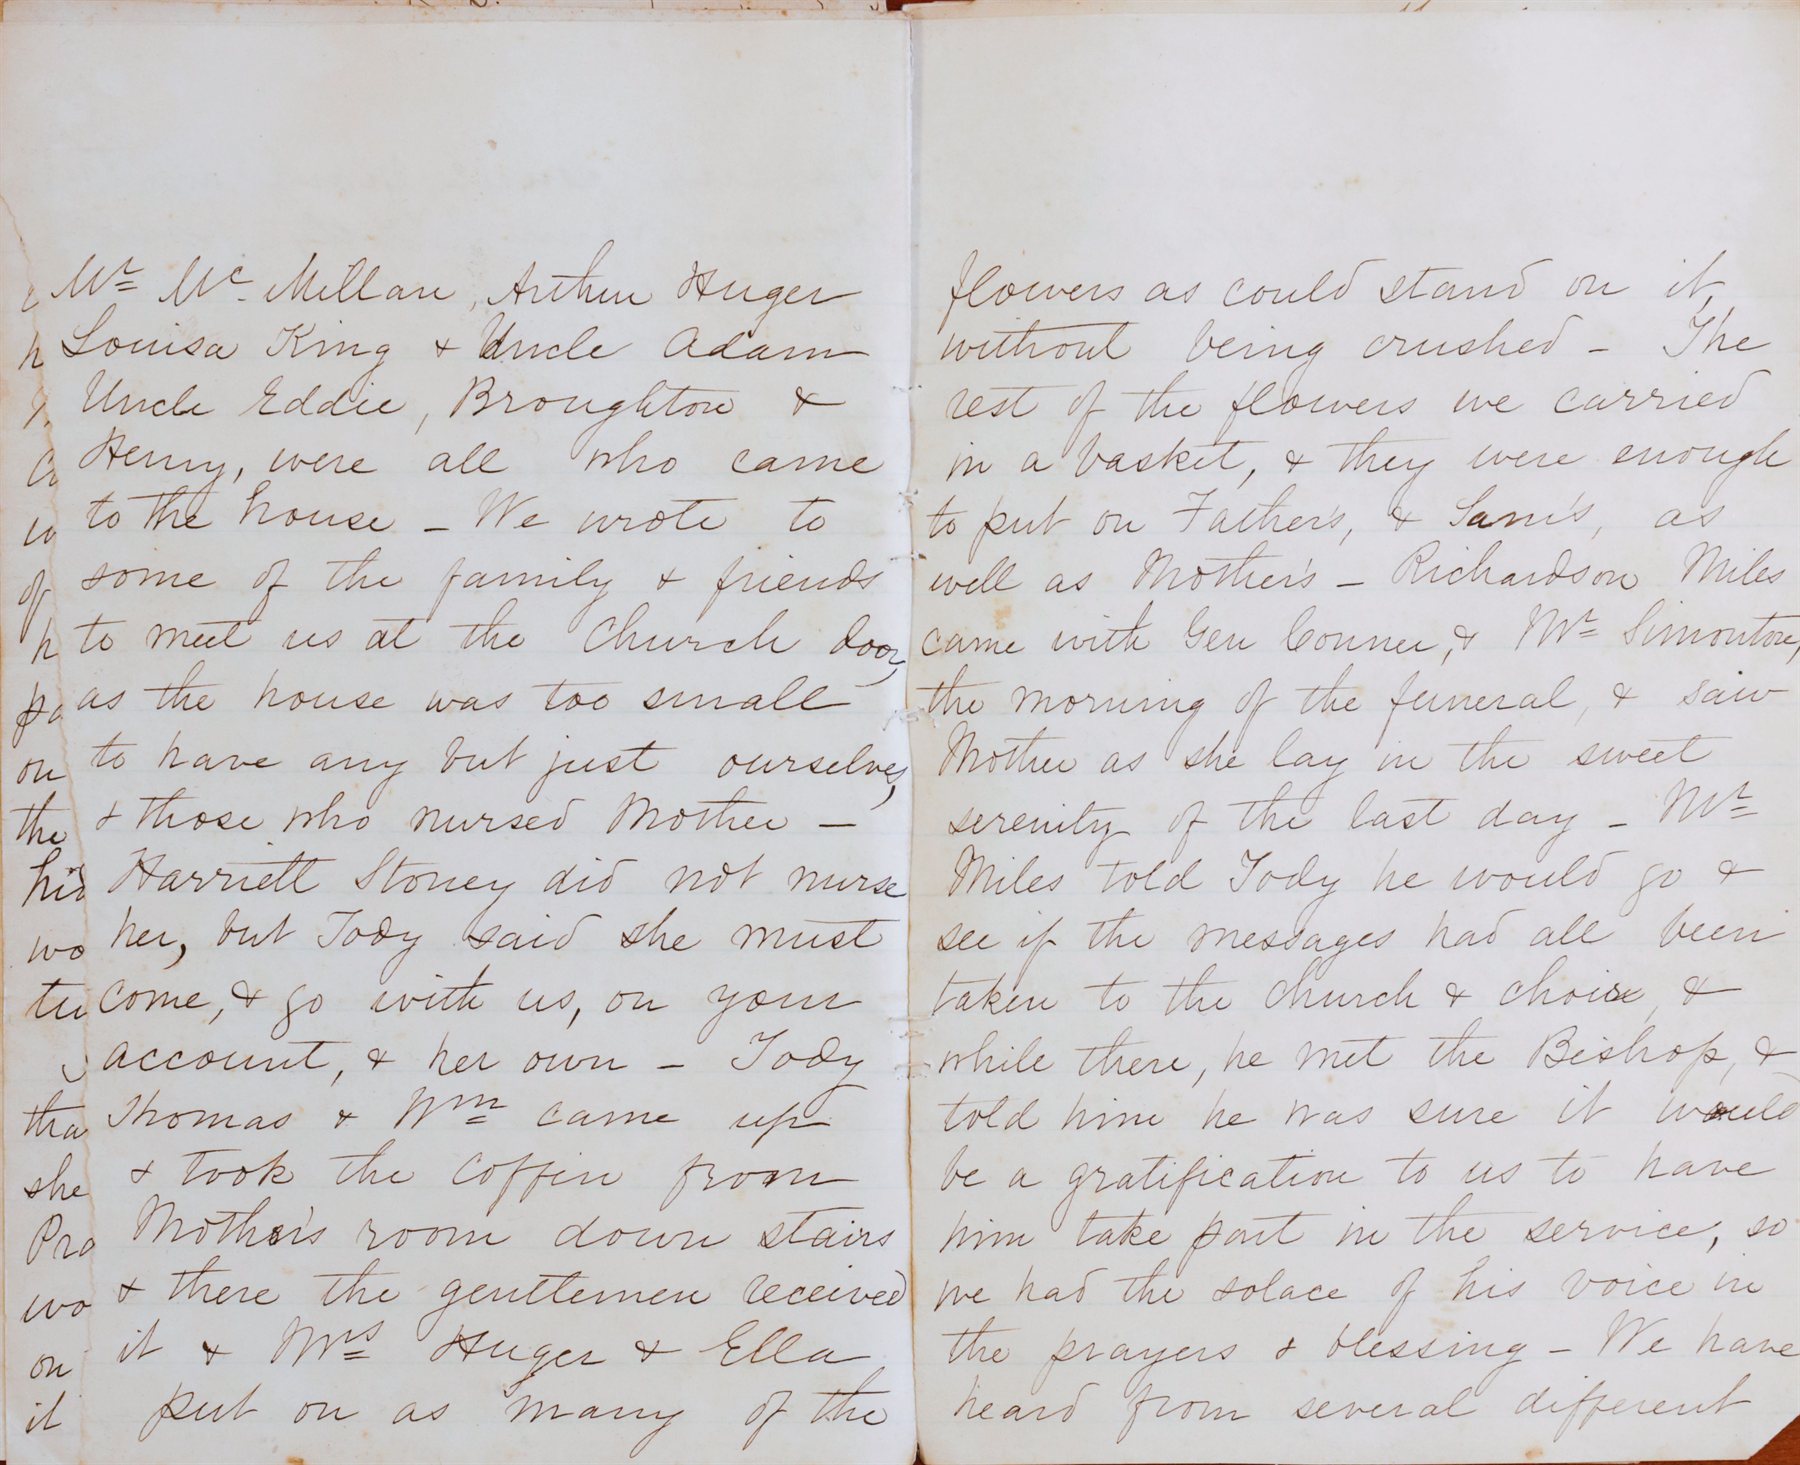 Mr Mc Millan, Arthur Huger
Louisa King & Uncle Adam
Uncle Eddie, Broughton &
Henry, were all who came
to the house – We wrote to
some of the family & friends
to meet us at the Church door,
as the house was too small
to have any but just ourselves,
& those who nursed Mother –
Harriett Stoney did not nurse
her, but Tody said she must
come, & go with us, on your
account, & her own – Tody
Thomas & Wm came up
& took the coffin from
Mother's room down stairs
& there the gentlemen received
it & Mrs Huger & Ella
put on as many of the
flowers as could stand on it,
without being crushed – The
rest of the flowers we carried
in a basket, & they were enough
to put on Father's, & Sam's, as
well as Mother's – Richardson Miles
came with Gen Conner, & Mr Simonton,
the morning of the funeral, & saw
Mother as she lay in the sweet
serenity of the last day – Mr
Miles told Tody he would go &
see if the messages had all been
taken to the church & choir, &
while there, he met the Bishop, &
told him he was sure it would
be a gratification to us to have
him take part in the service, so
we had the solace of his voice in
the prayers & blessing – We have
heard from several different
on
the
his
wo
tra
she
Pro
wo
on
it